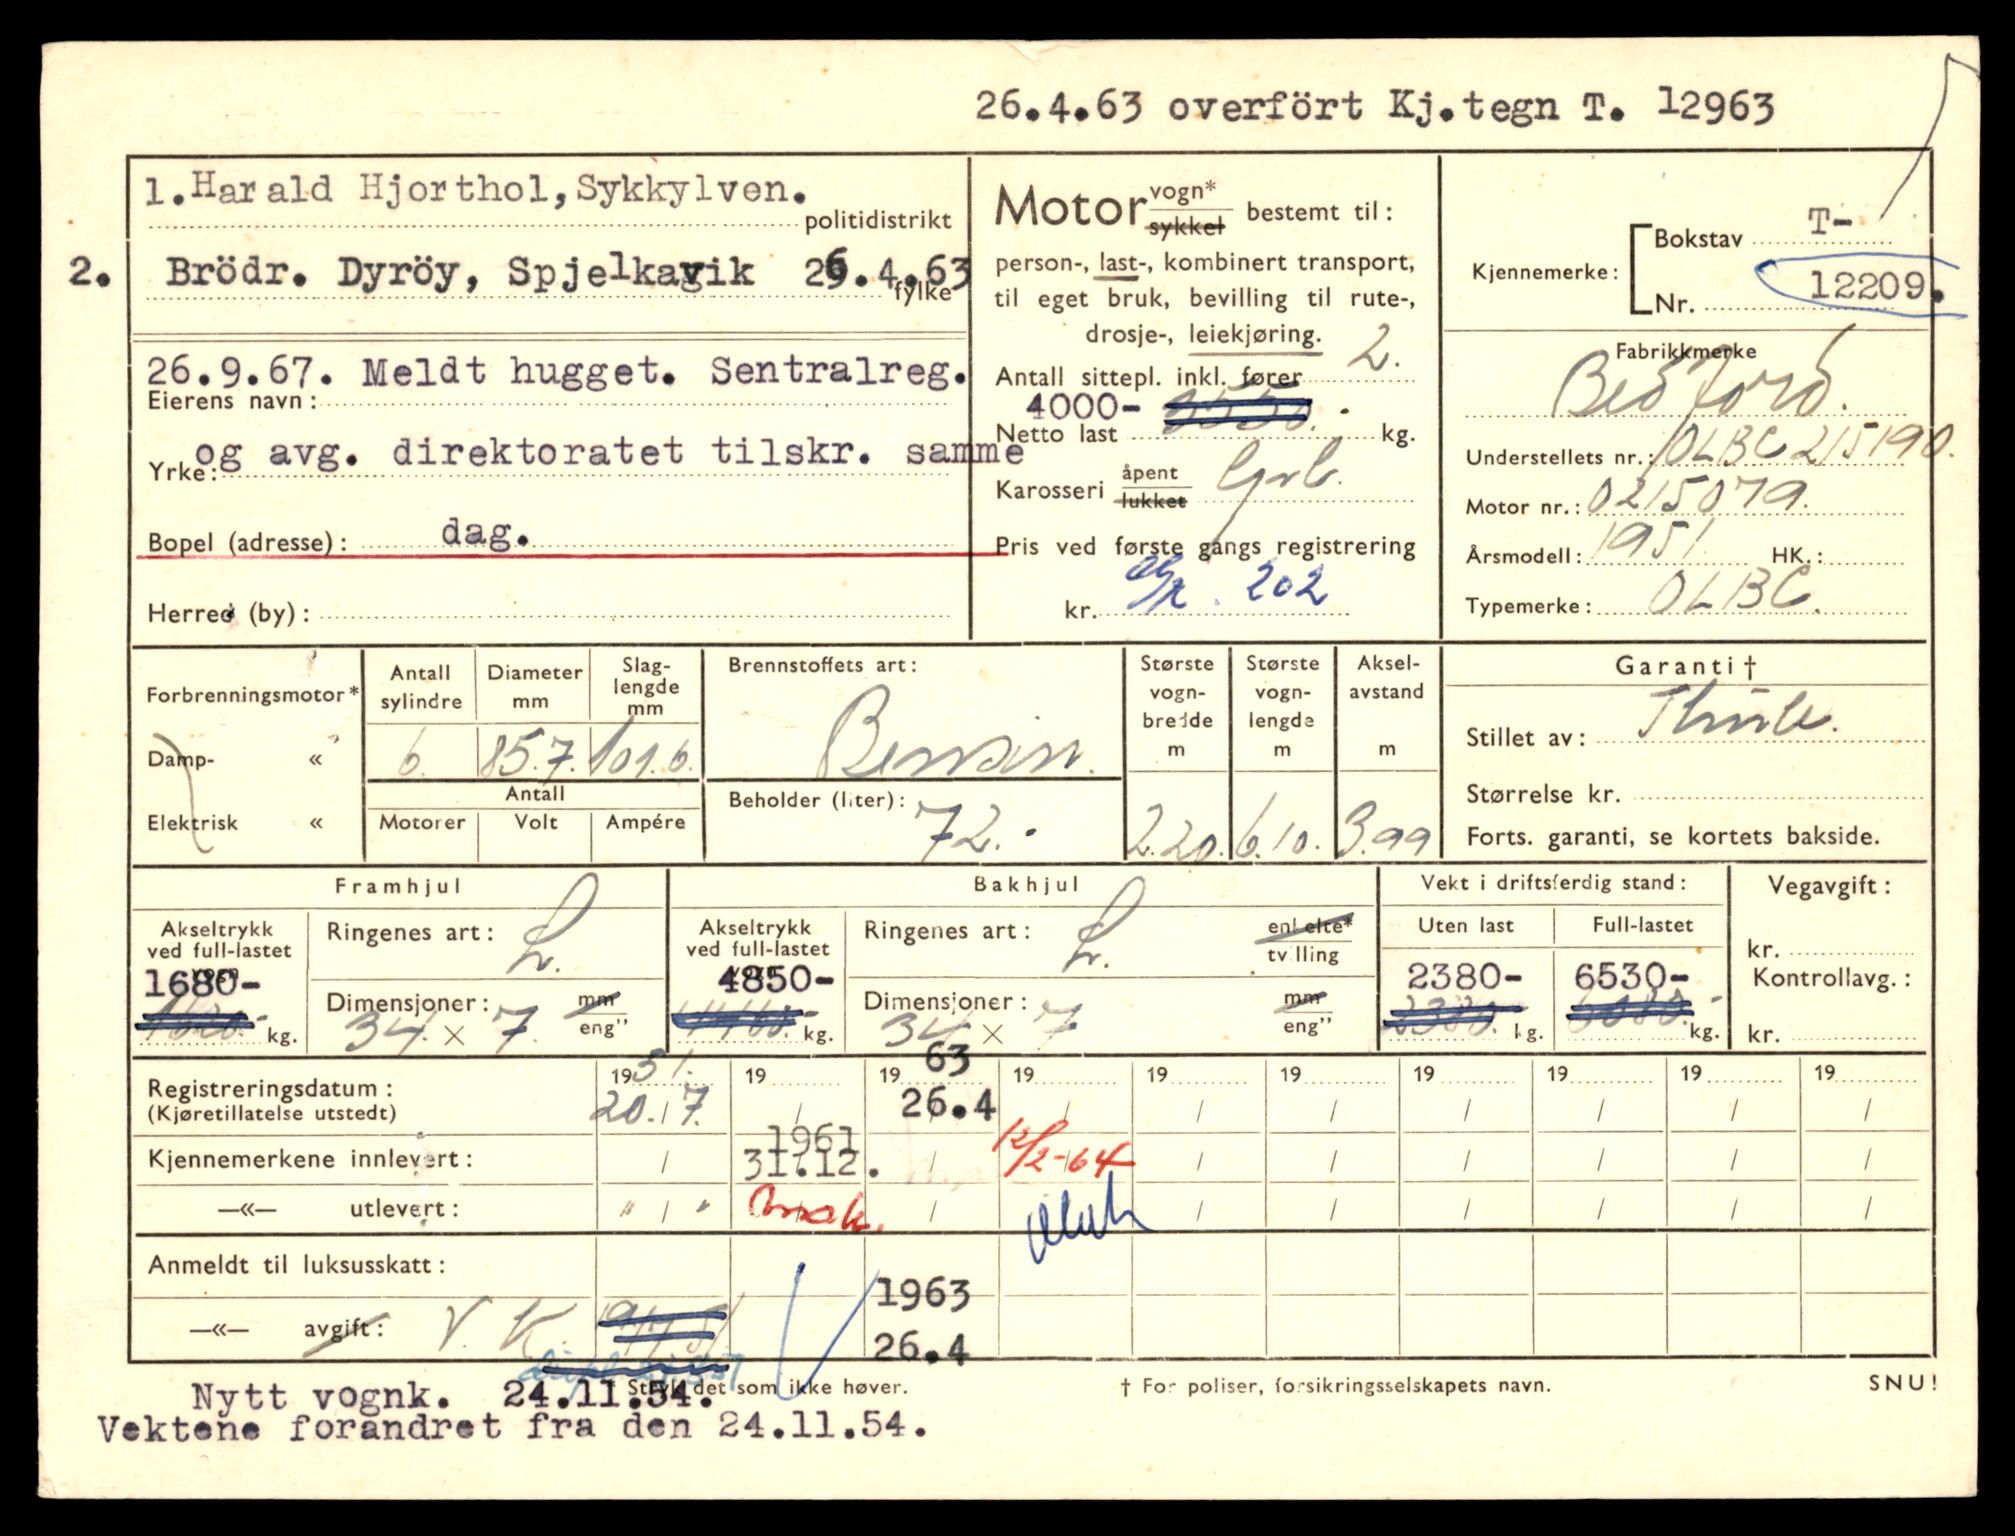 26.4.63 overfört Kj.tegn T. 12963
1. Harald Hjorthol, Sykkylven.
politidistrikt
2. Brödr. Dyröy, Spjelkavik 26.4.63
fylke
26.9.67. Meldt hugget. Sentralreg.
Eierens navn:
og avg. direktoratet tilskr. samme
Yrke:
Bopel (adresse): dag.
Herred (by):
Motor vogn* sykkel bestemt til:
person-, last-, kombinert transport,
til eget bruk, bevilling til rute-,
drosje-, leiekjøring.
Antall sittepl. inkl. fører 2.
4000-
Netto last kg.
Karosseri åpent lukket
Pris ved første gangs registrering
kr. 202
Kjennemerke:
Bokstav T-
Nr. 12209.
Fabrikkmerke
Bedford.
Understellets nr.: OLBC 215190.
Motor nr.: 0215079.
Årsmodell: 1951. HK.:
Typemerke: OLBC.
Forbrenningsmotor*
Damp- «
Elektrisk «
Antall sylindre
Diameter mm
Slag-lengde mm
6. 85.7. 101.6.
Antall
Motorer Volt Ampére
Brennstoffets art:
Bensin.
Beholder (liter): 72.
Største vogn-bredde m
Største vogn-lengde m
Aksel-avstand m
2.20. 6.10. 3.99
Garanti †
Stillet av: Thule.
Størrelse kr.
Forts. garanti, se kortets bakside.
Framhjul
Akseltrykk ved full-lastet vogn
1680-
kg.
Ringenes art: L.
Dimensjoner: mm eng”
34. × 7.
Bakhjul
Akseltrykk ved full-lastet vogn
4850-
kg.
Ringenes art: L. enkelte* tvilling
Dimensjoner: mm eng”
34 × 7
Vekt i driftsferdig stand:
Uten last Full-lastet
2380- 6530-
2380. kg. 6080.- kg.
Vegavgift:
kr.
Kontrollavg.:
kr.
Registreringsdatum: 1951. 19 19 63 19 19 19 19 19 19 19
(Kjøretillatelse utstedt) 20./7. / 26.4 / / / / / / /
1961
Kjennemerkene innlevert: / 31.12. / 12/2-64 / / / / / /
—«— utlevert: " / " / / / / / / /
Anmeldt til luksusskatt: 1963
—«— avgift: V. K. 26.4
Nytt vognk. 24.11.54.
* Stryk det som ikke høver.
† For poliser, forsikringsselskapets navn.
SNU!
Vektene forandret fra den 24.11.54.